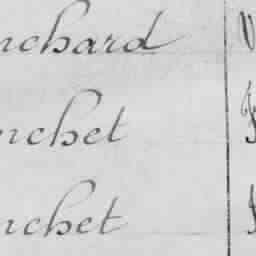 nchard
nchet
nchet